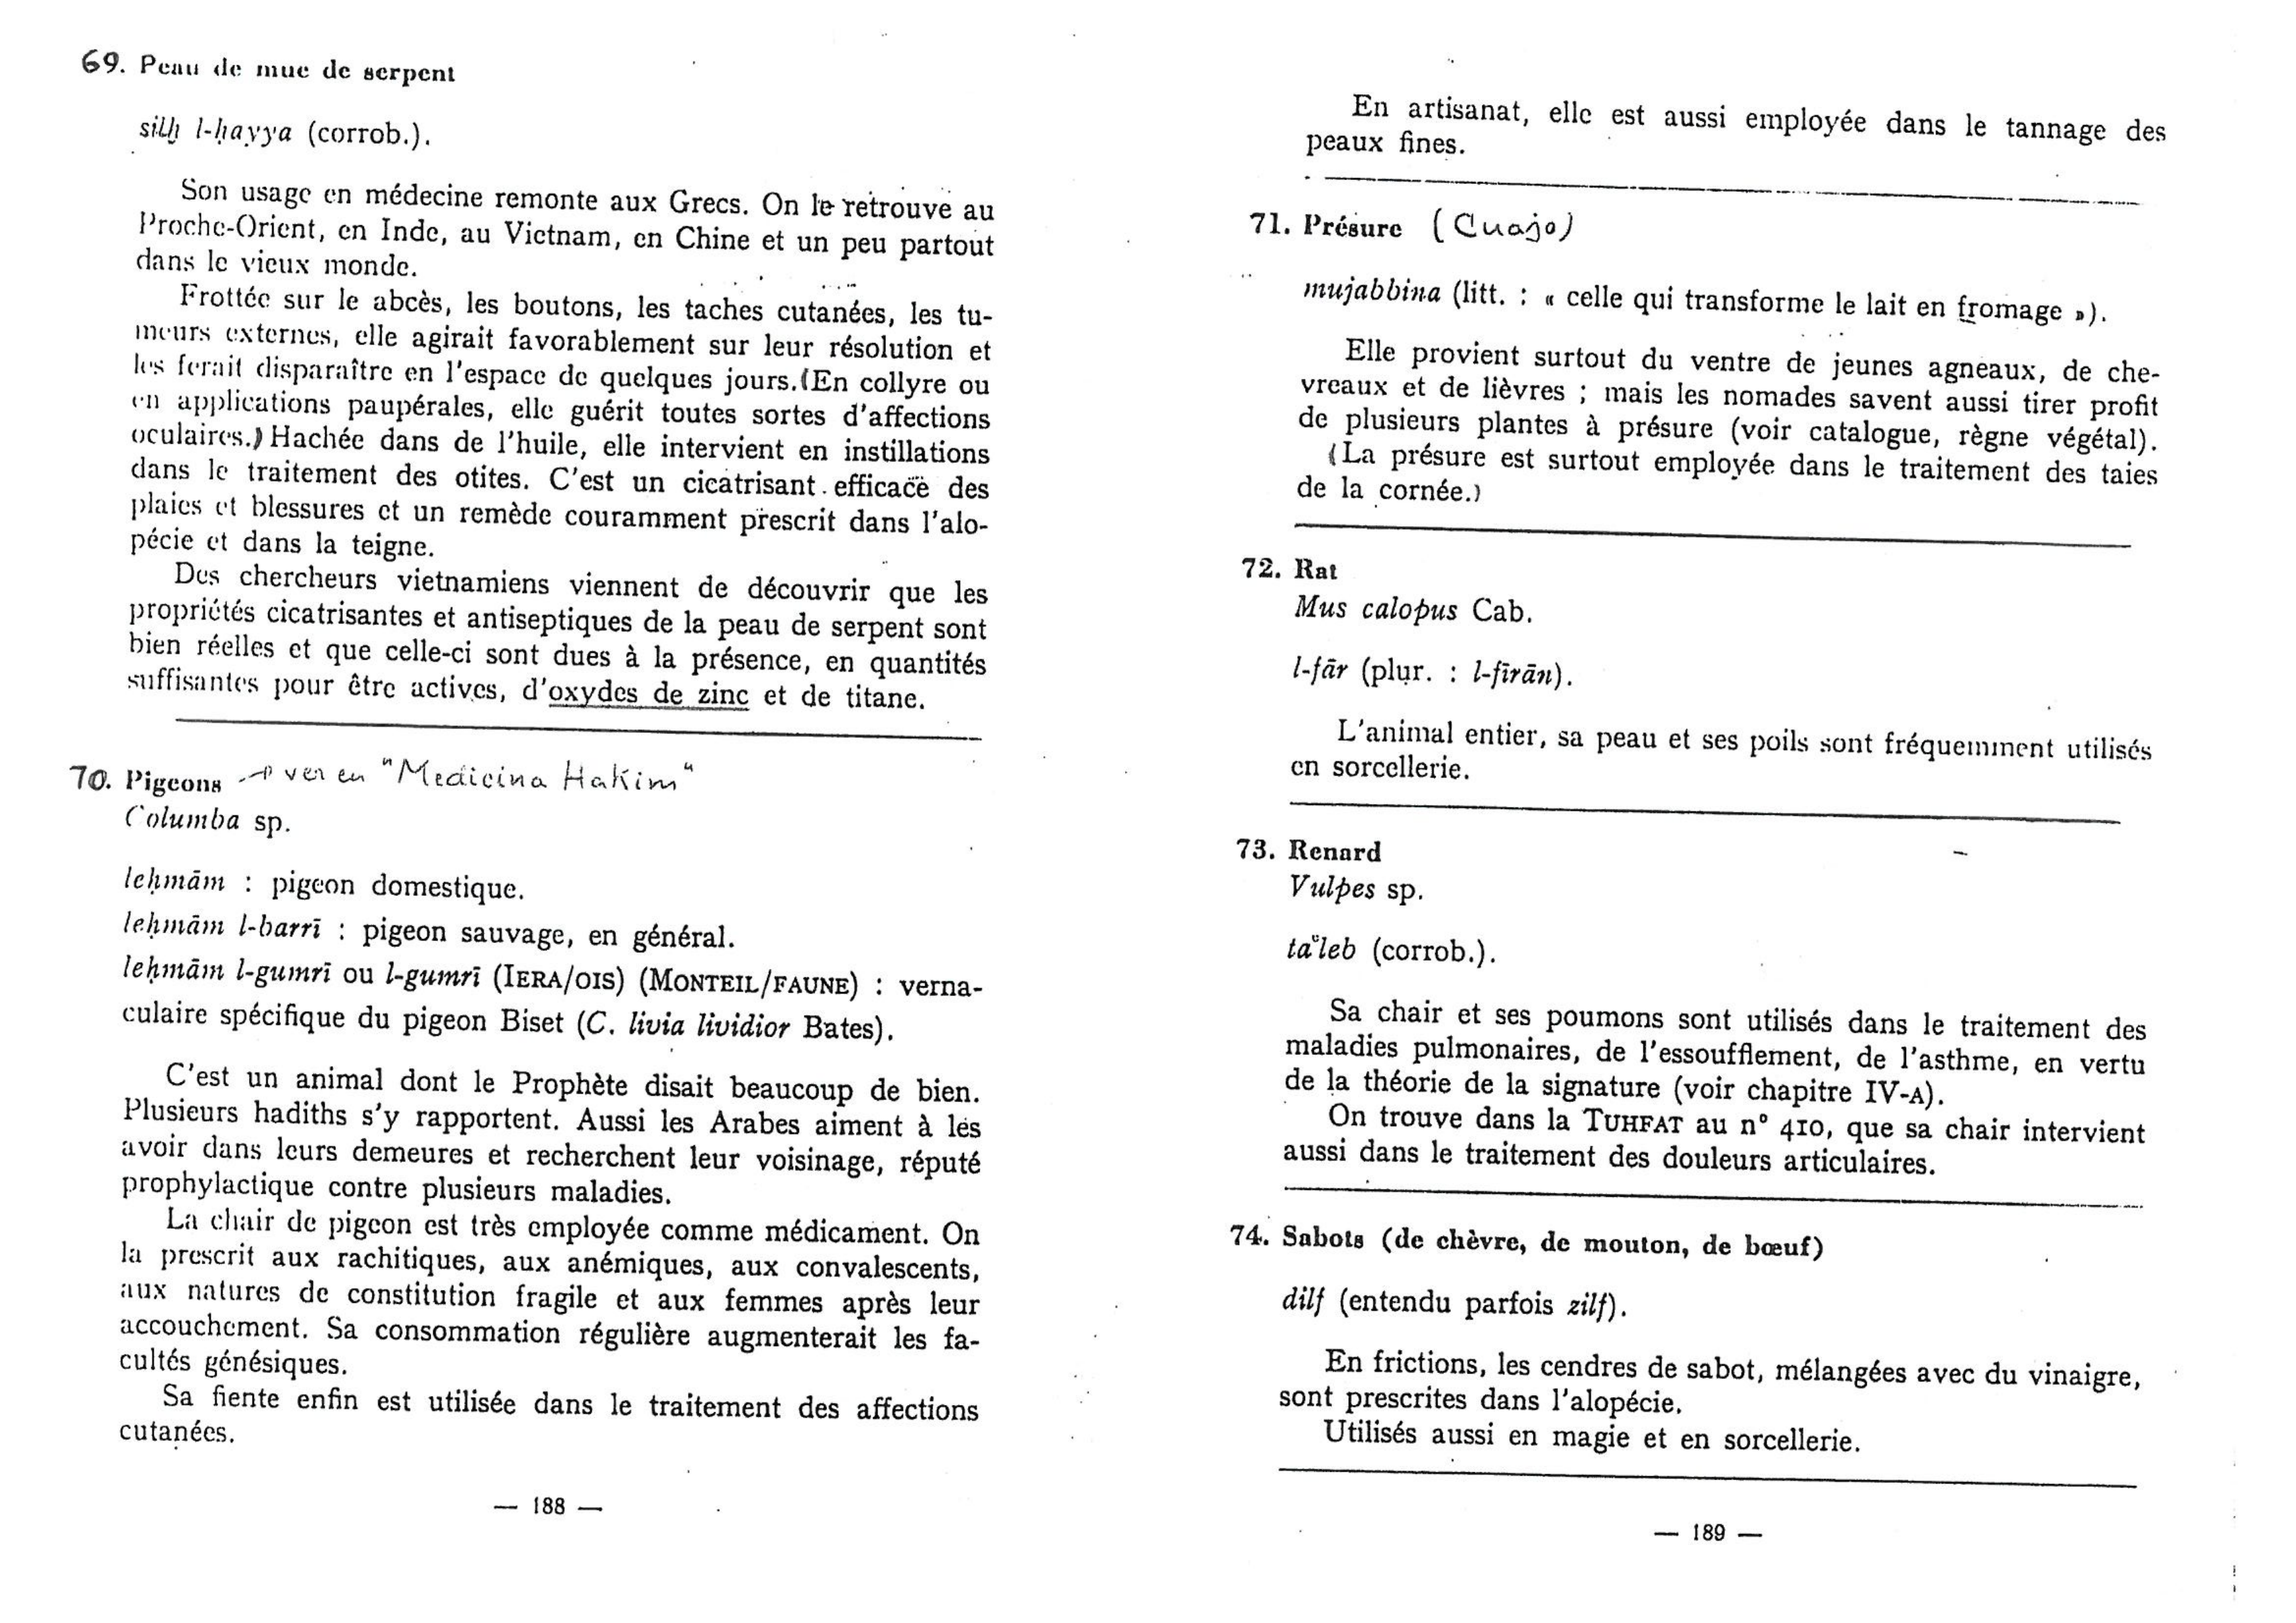 69. Peau de mue de serpent
silḫ l-ḥayya (corrob.).
Son usage en médecine remonte aux Grecs. On le retrouve au
Proche-Orient, en Inde, au Vietnam, en Chine et un peu partout
dans le vieux monde.
Frottée sur le abcès, les boutons, les taches cutanées, les tu-
meurs externes, elle agirait favorablement sur leur résolution et
les ferait disparaître en l'espace de quelques jours. (En collyre ou
en applications paupérales, elle guérit toutes sortes d'affections
oculaires.) Hachée dans de l'huile, elle intervient en instillations
dans le traitement des otites. C'est un cicatrisant efficace des
plaies et blessures et un remède couramment prescrit dans l'alo-
pécie et dans la teigne.
Des chercheurs vietnamiens viennent de découvrir que les
propriétés cicatrisantes et antiseptiques de la peau de serpent sont
bien réelles et que celle-ci sont dues à la présence, en quantités
suffisantes pour être actives, d'oxydes de zinc et de titane.
70. Pigeons → ver en "Medicina Hakim"
Columba sp.
leḥmām : pigeon domestique.
leḥmām l-barrī : pigeon sauvage, en général.
leḥmām l-gumrī ou l-gumrī (IERA/OIS) (MONTEIL/FAUNE) : verna-
culaire spécifique du pigeon Biset (C. livia lividior Bates).
C'est un animal dont le Prophète disait beaucoup de bien.
Plusieurs hadiths s'y rapportent. Aussi les Arabes aiment à les
avoir dans leurs demeures et recherchent leur voisinage, réputé
prophylactique contre plusieurs maladies.
La chair de pigeon est très employée comme médicament. On
la prescrit aux rachitiques, aux anémiques, aux convalescents,
aux natures de constitution fragile et aux femmes après leur
accouchement. Sa consommation régulière augmenterait les fa-
cultés génésiques.
Sa fiente enfin est utilisée dans le traitement des affections
cutanées.
— 188 —
En artisanat, elle est aussi employée dans le tannage des
peaux fines.
71. Présure (Cuajo)
mujabbina (litt. : « celle qui transforme le lait en fromage »).
Elle provient surtout du ventre de jeunes agneaux, de che-
vreaux et de lièvres ; mais les nomades savent aussi tirer profit
de plusieurs plantes à présure (voir catalogue, règne végétal).
(La présure est surtout employée dans le traitement des taies
de la cornée.)
72. Rat
Mus calopus Cab.
l-fār (plur. : l-fīrān).
L'animal entier, sa peau et ses poils sont fréquemment utilisés
en sorcellerie.
73. Renard
Vulpes sp.
taʿleb (corrob.).
Sa chair et ses poumons sont utilisés dans le traitement des
maladies pulmonaires, de l'essoufflement, de l'asthme, en vertu
de la théorie de la signature (voir chapitre IV-A).
On trouve dans la TUHFAT au n° 410, que sa chair intervient
aussi dans le traitement des douleurs articulaires.
74. Sabots (de chèvre, de mouton, de bœuf)
dilf (entendu parfois zilf).
En frictions, les cendres de sabot, mélangées avec du vinaigre,
sont prescrites dans l'alopécie.
Utilisés aussi en magie et en sorcellerie.
— 189 —